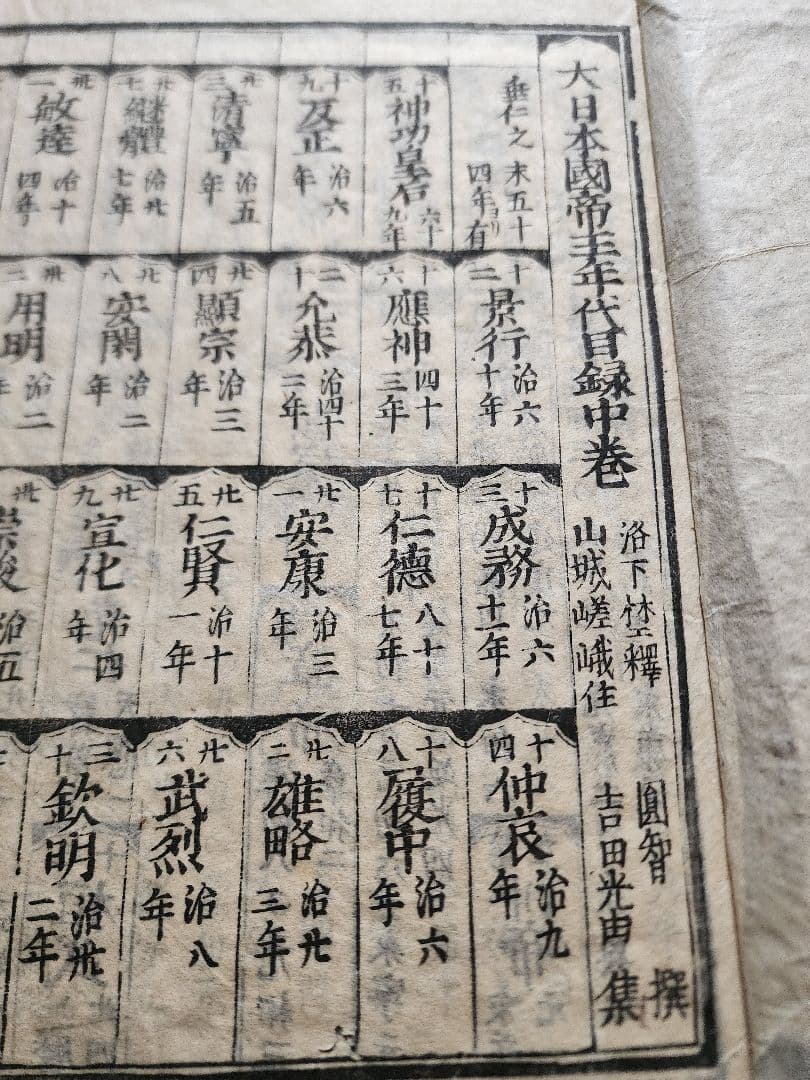 大日本國帝王年代目録中巻
洛下埜釋 圓智 撰
山城嵯峨住 吉田光由 集
垂仁之末五十
四年ヨリ有
十二 景行 治六十年
十三 成務 治六十一年
十四 仲哀 治九年
十五 神功皇后 六十九年
十六 應神 四十三年
十七 仁德 八十七年
十八 履中 治六年
十九 反正 治六年
二十 允恭 治四十二年
廿一 安康 治三年
廿二 雄略 治廿三年
廿三 清寧 治五年
廿四 顯宗 治三年
廿五 仁賢 治十一年
廿六 武烈 治八年
廿七 継體 治廿七年
廿八 安閑 治二年
廿九 宣化 治四年
三十 欽明 治卅二年
卅一 敏達 治十四年
卅二 用明 治二年
卅三 崇峻 治五